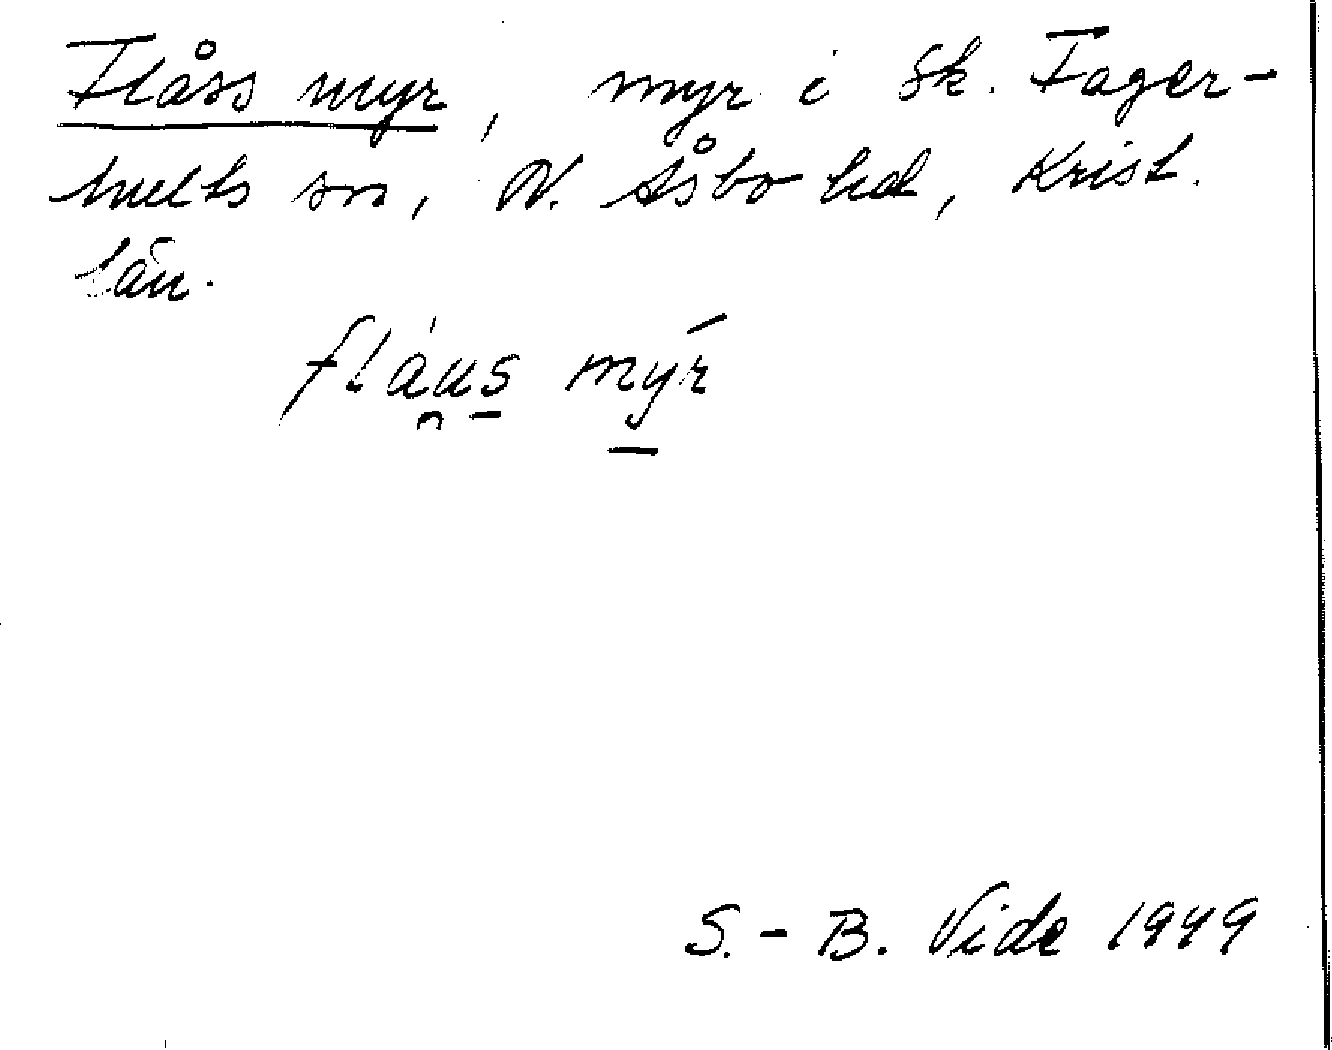 Flåss myr, myr i Sk. Fager-
hults sn, N. Åsbo hd, Krist.
län.
fláus mýr
S.-B. Vide 1949